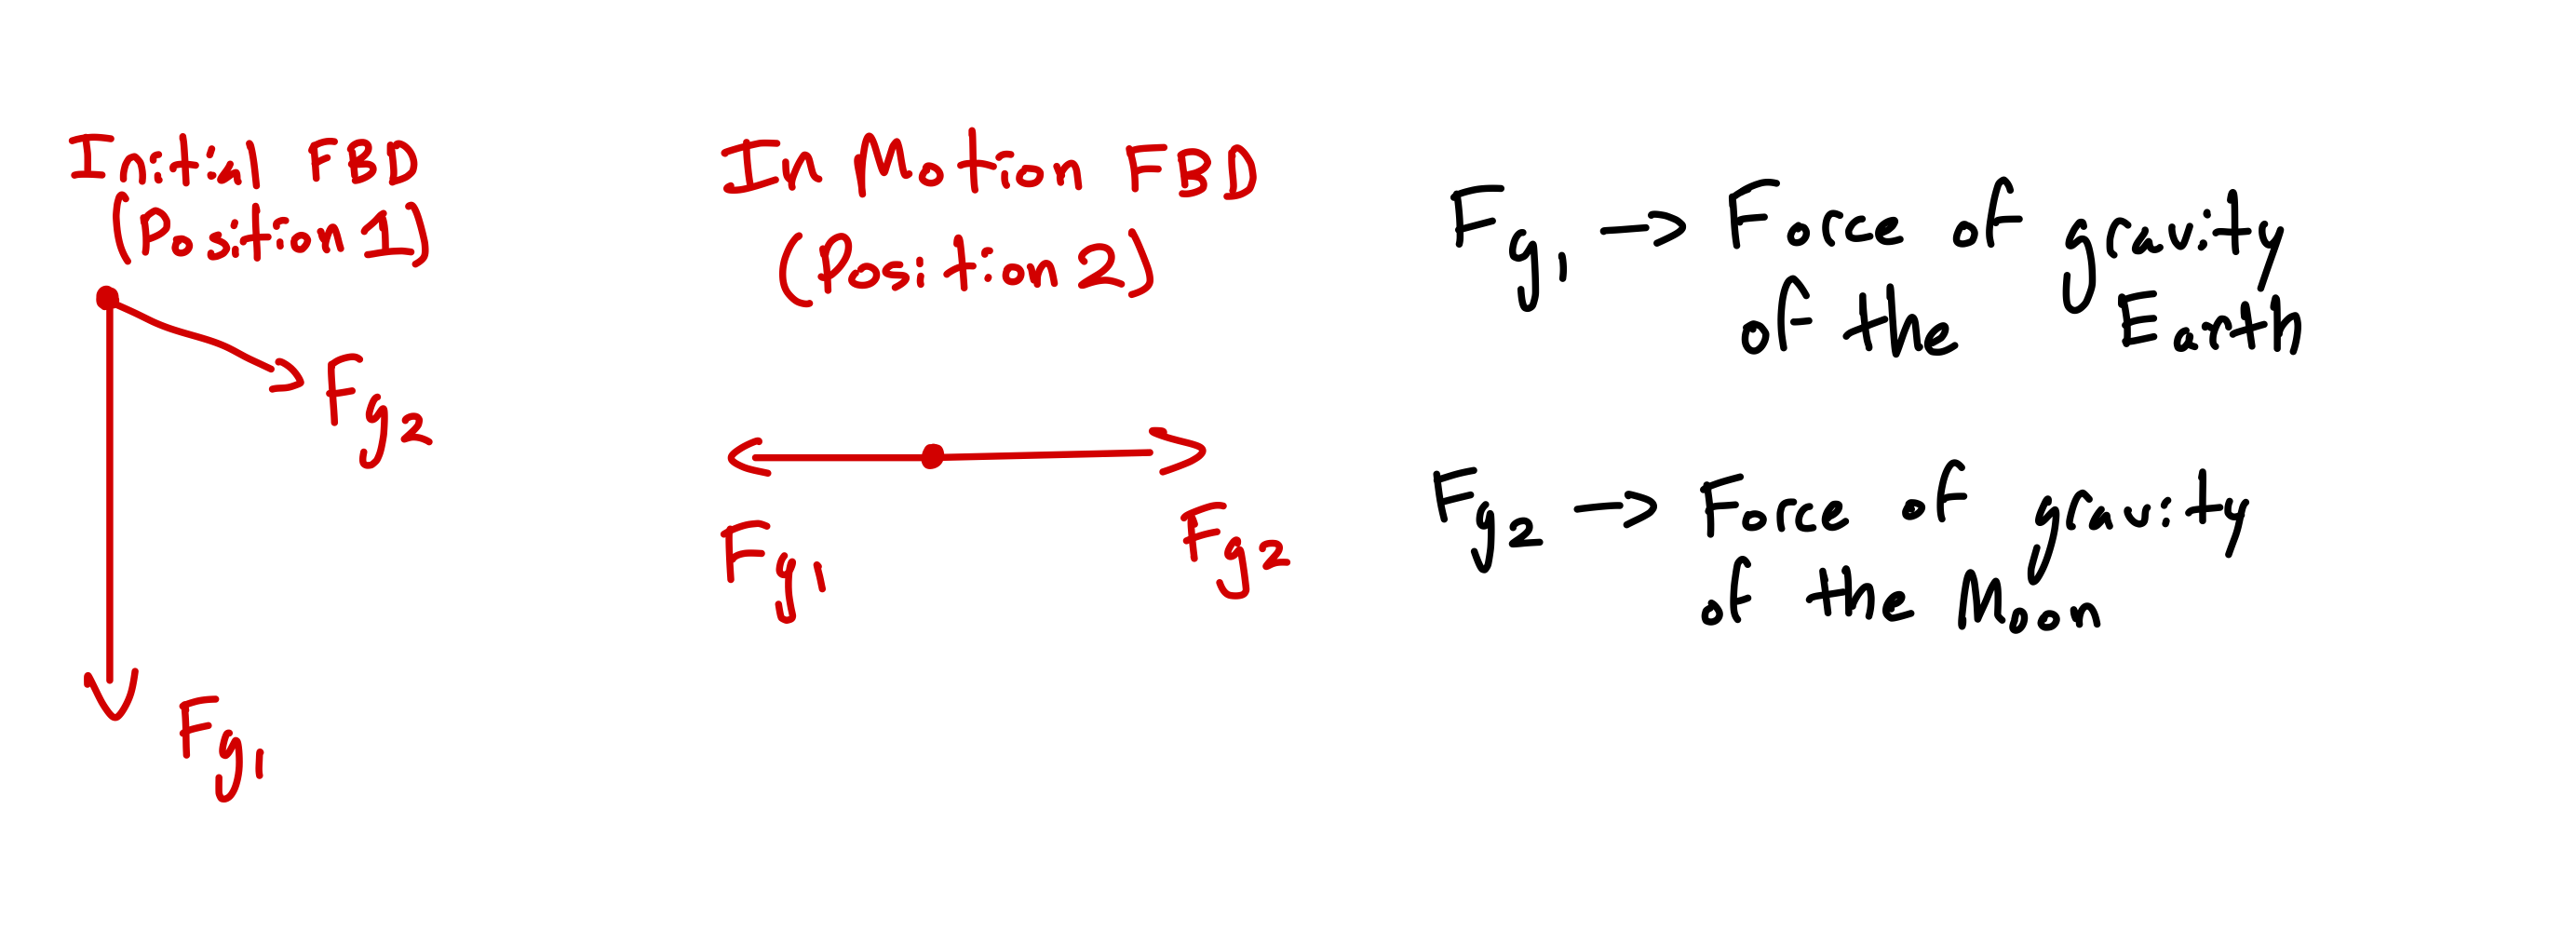 Initial FBD
(Position 1)
Fg2
Fg1
In Motion FBD
(Position 2)
Fg1
Fg2
Fg1 → Force of gravity
of the Earth
Fg2 → Force of gravity
of the Moon